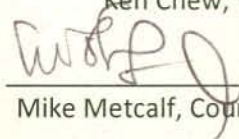 Ken Chew,
Mike Metcalf, Cou